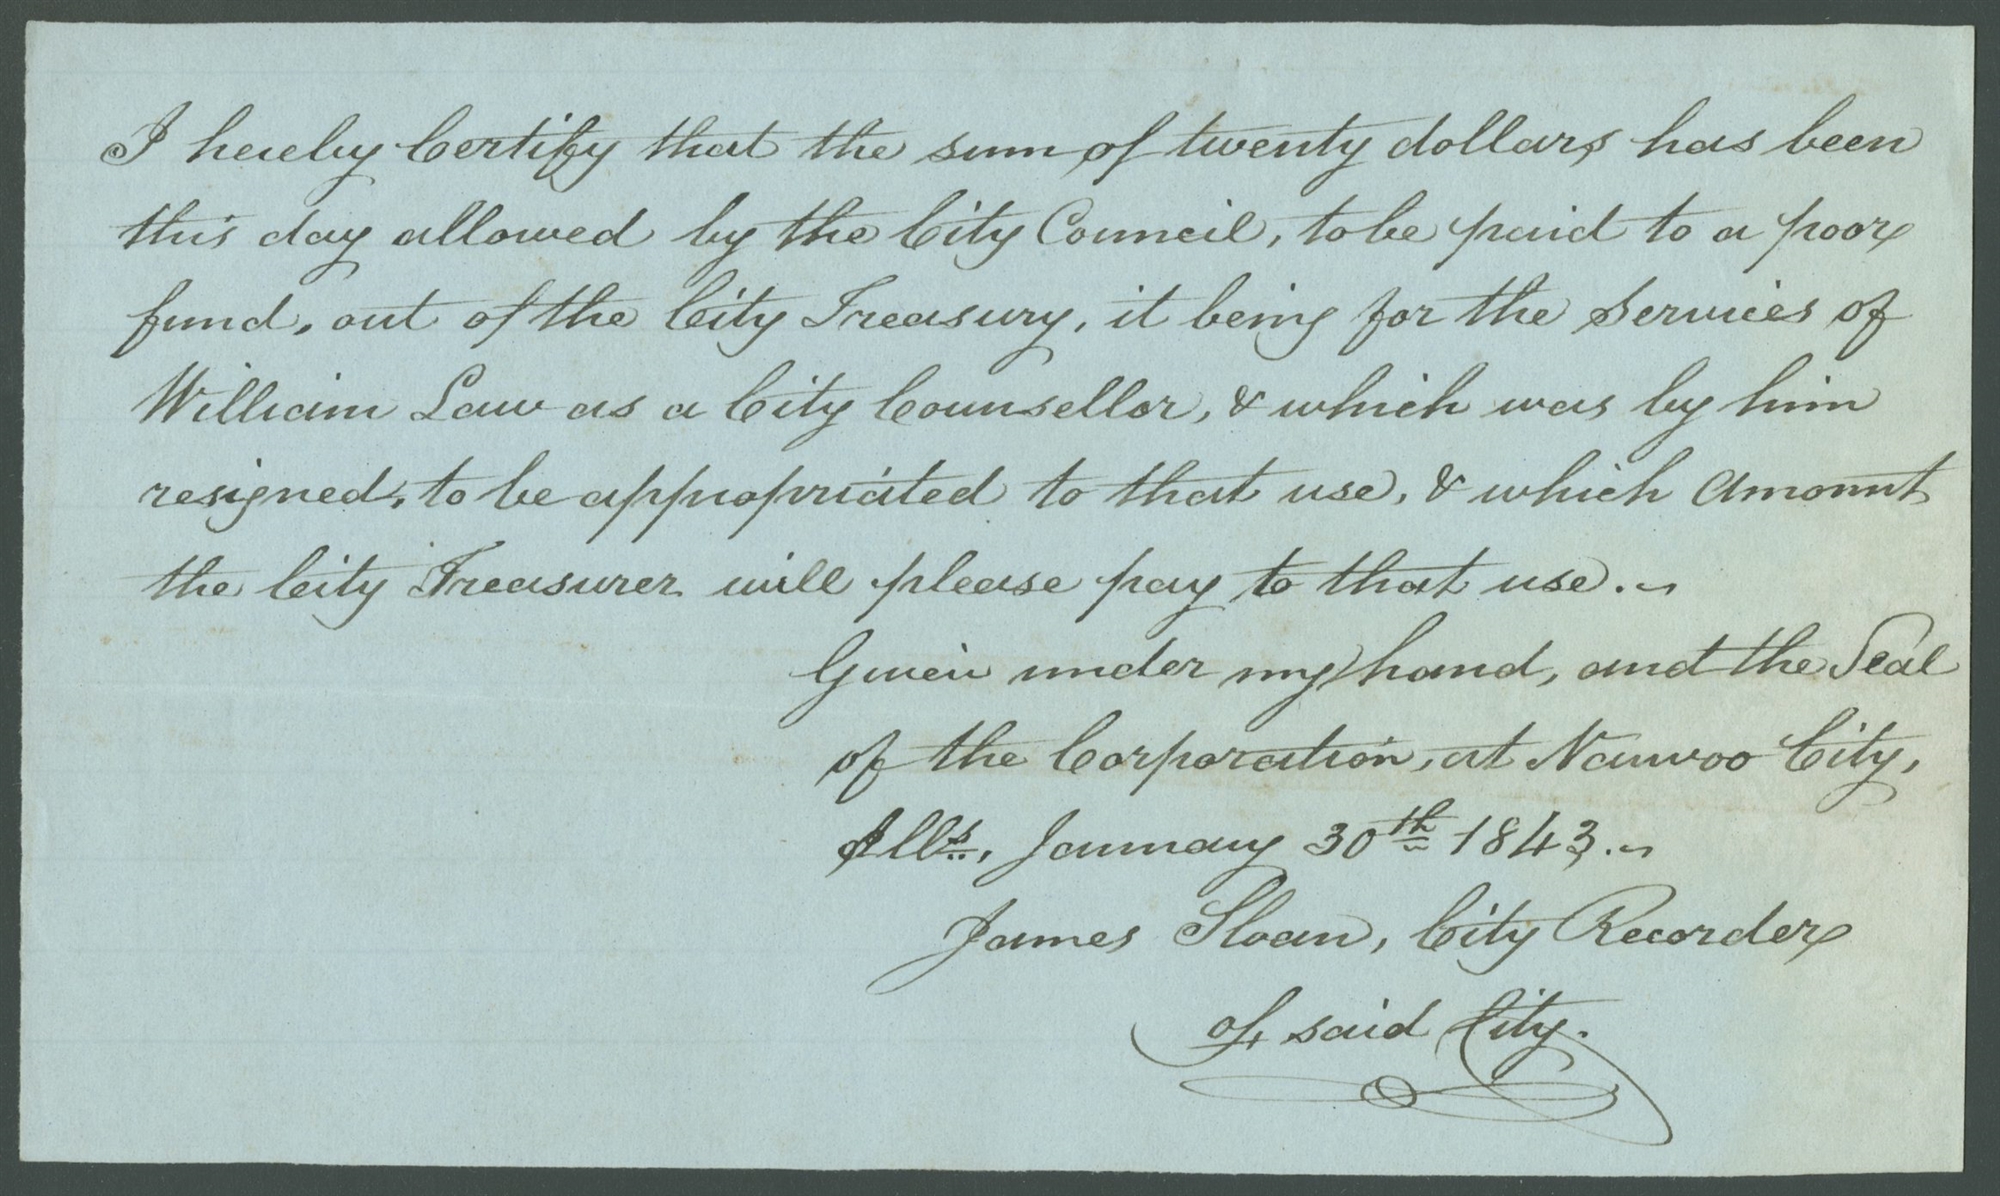 I hereby Certify that the sum of twenty dollars has been
this day allowed by the City Council, to be paid to a poor
fund, out of the City Treasury, it being for the Services of
William Law as a City Counsellor, & which was by him
resigned, to be appropriated to that use, & which Amount
the City Treasurer will please pay to that use.~
Given under my hand, and the Seal
of the Corporation, at Nauvoo City,
Ills., January 30th 1843.~
James Sloan, City Recorder
of said City.